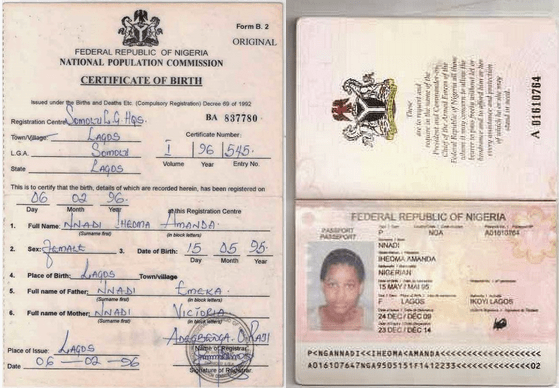 Form B. 2
ORIGINAL
FEDERAL REPUBLIC OF NIGERIA
NATIONAL POPULATION COMMISSION
CERTIFICATE OF BIRTH
Issued under the Births and Deaths Etc. (Compulsory Registration) Decree 69 of 1992
Registration Centre SOMOLU L.G HQS. BA 837780
Town/Village LAGOS Certificate Number
L.G.A. SOMOLU I 96 545
State LAGOS Volume Year Entry No.
This is to certify that the birth, details of which are recorded herein, has been registered on
06 02 96
Day Month Year at this Registration Centre
1. Full Name: NNADI IHEOMA AMANDA
(Surname first) (in block letters)
2. Sex: Female 3. Date of Birth: 15 05 95
Day Month Year
4. Place of Birth: LAGOS Town/village
5. Full name of Father: NNADI EMEKA
(Surname first) (in block letters)
6. Full name of Mother: NNADI VICTORIA
(Surname first) (in block letters)
Place of Issue: LAGOS Name of Registrar
Date 06-02-96
Signature of Registrar
These
are to request and
require in the name of the
President and Commander-in-
Chief of the Armed Forces of the
Federal Republic of Nigeria all those
whom it may concern to allow the
bearer to pass freely without let or
hindrance and to afford him or her
every assistance and protection
of which he or she may
stand in need.
A 01610764
FEDERAL REPUBLIC OF NIGERIA
PASSPORT
PASSEPORT
P NGA A01610764
NNADI
IHEOMA AMANDA
NIGERIAN
15 MAY / MAI 95
F LAGOS
24 DEC / DÉC 09 IKOYI LAGOS
23 DEC / DÉC 14
P<NGANNADI<<IHEOMA<AMANDA<<<<<<<<<<<<<<<<<<<
A016107647NGA9505151F1412233<<<<<<<<<<<<<<02